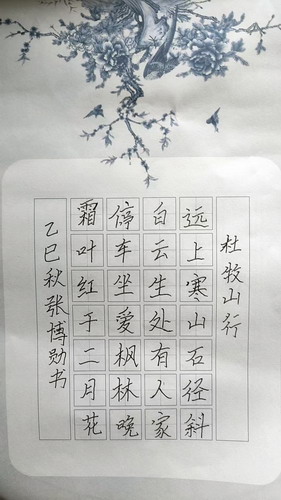 杜牧山行
远上寒山石径斜
白云生处有人家
停车坐爱枫林晚
霜叶红于二月花
乙巳秋张博勋书